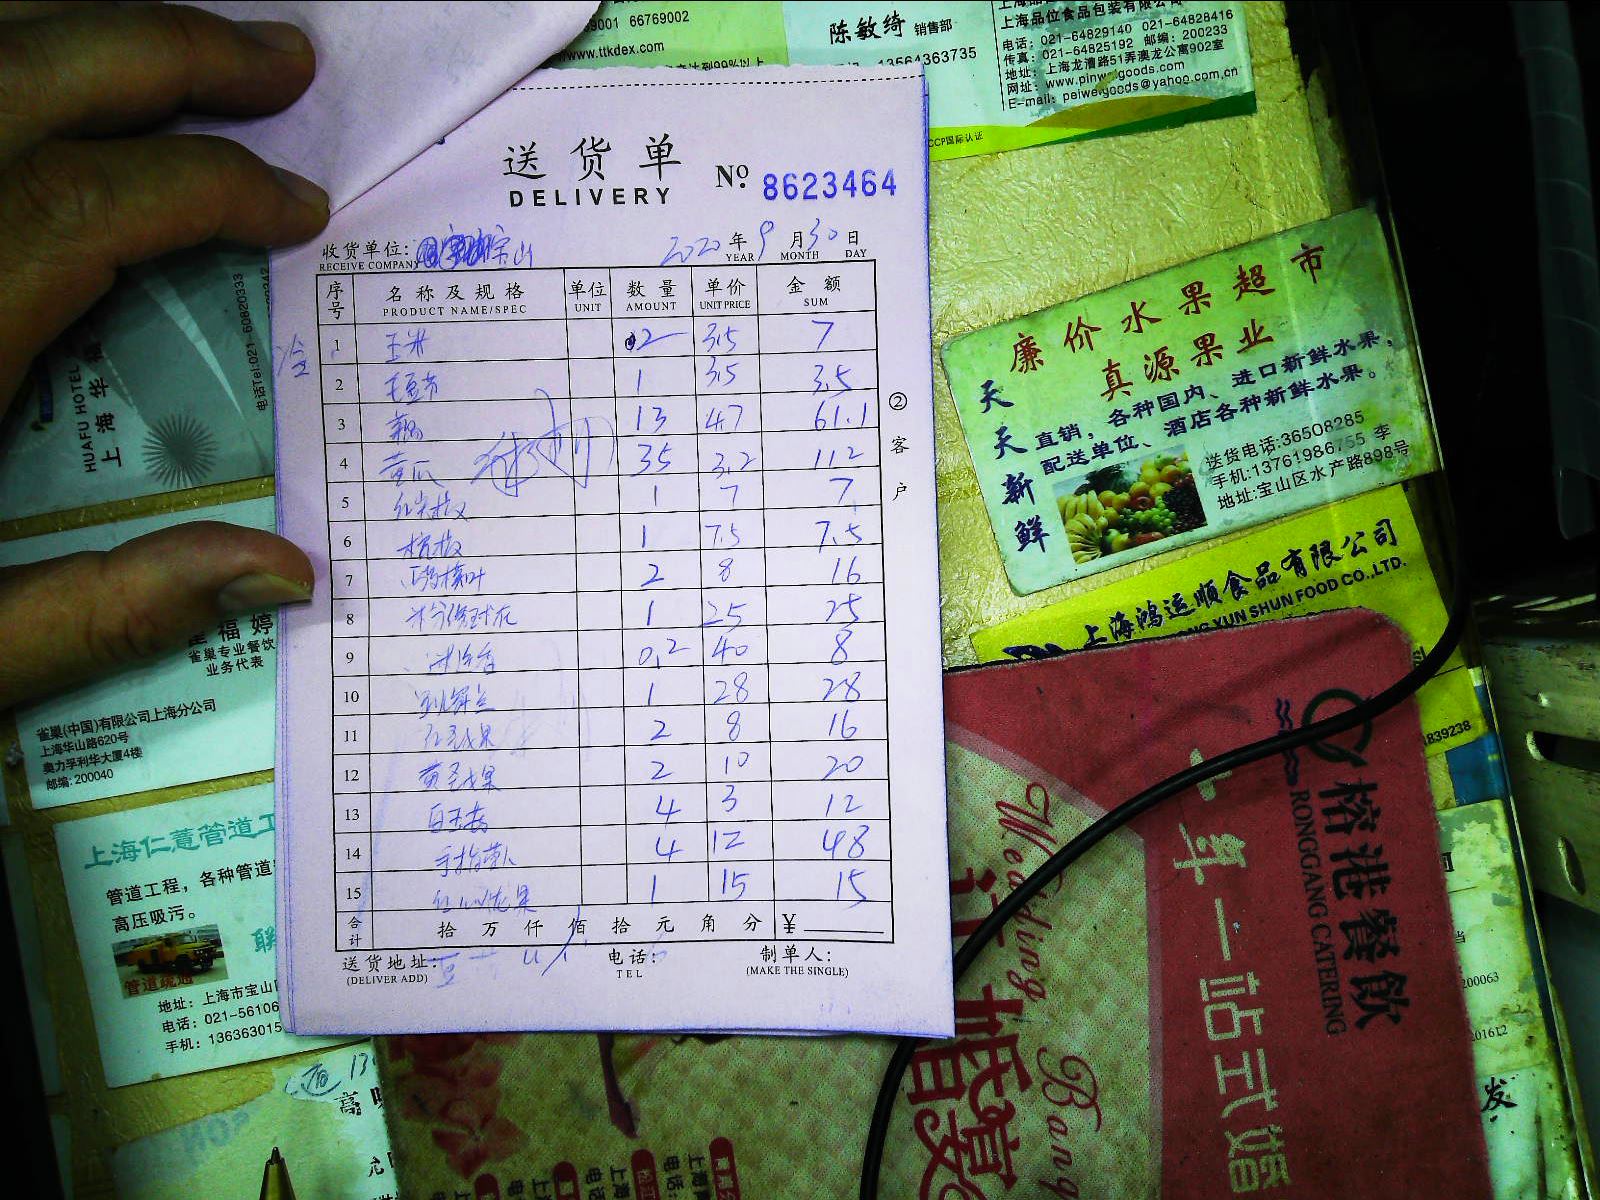 66769002
www.ttkdex.com
陈敏绮 销售部
13564363735
上海品位食品包装有限公司
电话：021-64829140 021-64828416
传真：021-64825192 邮编：200233
地址：上海龙漕路51弄澳龙公寓902室
网址：www.pinweigoods.com
E-mail：peiweigoods@yahoo.com.cn
CCP国际认证
送货单
DELIVERY
No. 8623464
收货单位： 宝山 2020 年 9 月 30 日
RECEIVE COMPANY YEAR MONTH DAY
序号 名称及规格 单位 数量 单价 金额
PRODUCT NAME/SPEC UNIT AMOUNT UNIT PRICE SUM
1 玉米 2 3.5 7
2 毛豆节 1 3.5 3.5
3 藕 13 4.7 61.1
4 黄瓜 35 3.2 112
5 红尖椒 1 7 7
6 杭椒 1 7.5 7.5
7 2 8 16
8 1 25 25
9 0.2 40 8
10 1 28 28
11 红圣女果 2 8 16
12 黄圣女果 2 10 20
13 白玉菇 4 3 12
14 手指萝卜 4 12 48
15 红心火龙果 1 15 15
合计 拾 万 仟 佰 拾 元 角 分 ¥
送货地址： 电话： 制单人：
(DELIVER ADD) TEL (MAKE THE SINGLE)
②客户
HUAFU HOTEL
上海华
电话Tel:021-60820333
福婷
雀巢专业餐饮
业务代表
雀巢(中国)有限公司上海分公司
上海华山路620号
奥力孚利华大厦4楼
邮编：200040
上海仁薏管道工
管道工程，各种管道
高压吸污。
管道疏通
地址：上海市宝山
电话：021-56106
手机：136363015
廉价水果超市
真源果业
天天新鲜
直销，各种国内、进口新鲜水果，
配送单位、酒店各种新鲜水果。
送货电话:36508285
手机:13761986755 李
地址:宝山区水产路898号
上海鸿运顺食品有限公司
YUN SHUN FOOD CO.,LTD.
839238
榕港餐飲
RONGGANG CATERING
一站式婚
Wedding Bang
200063
201612
发